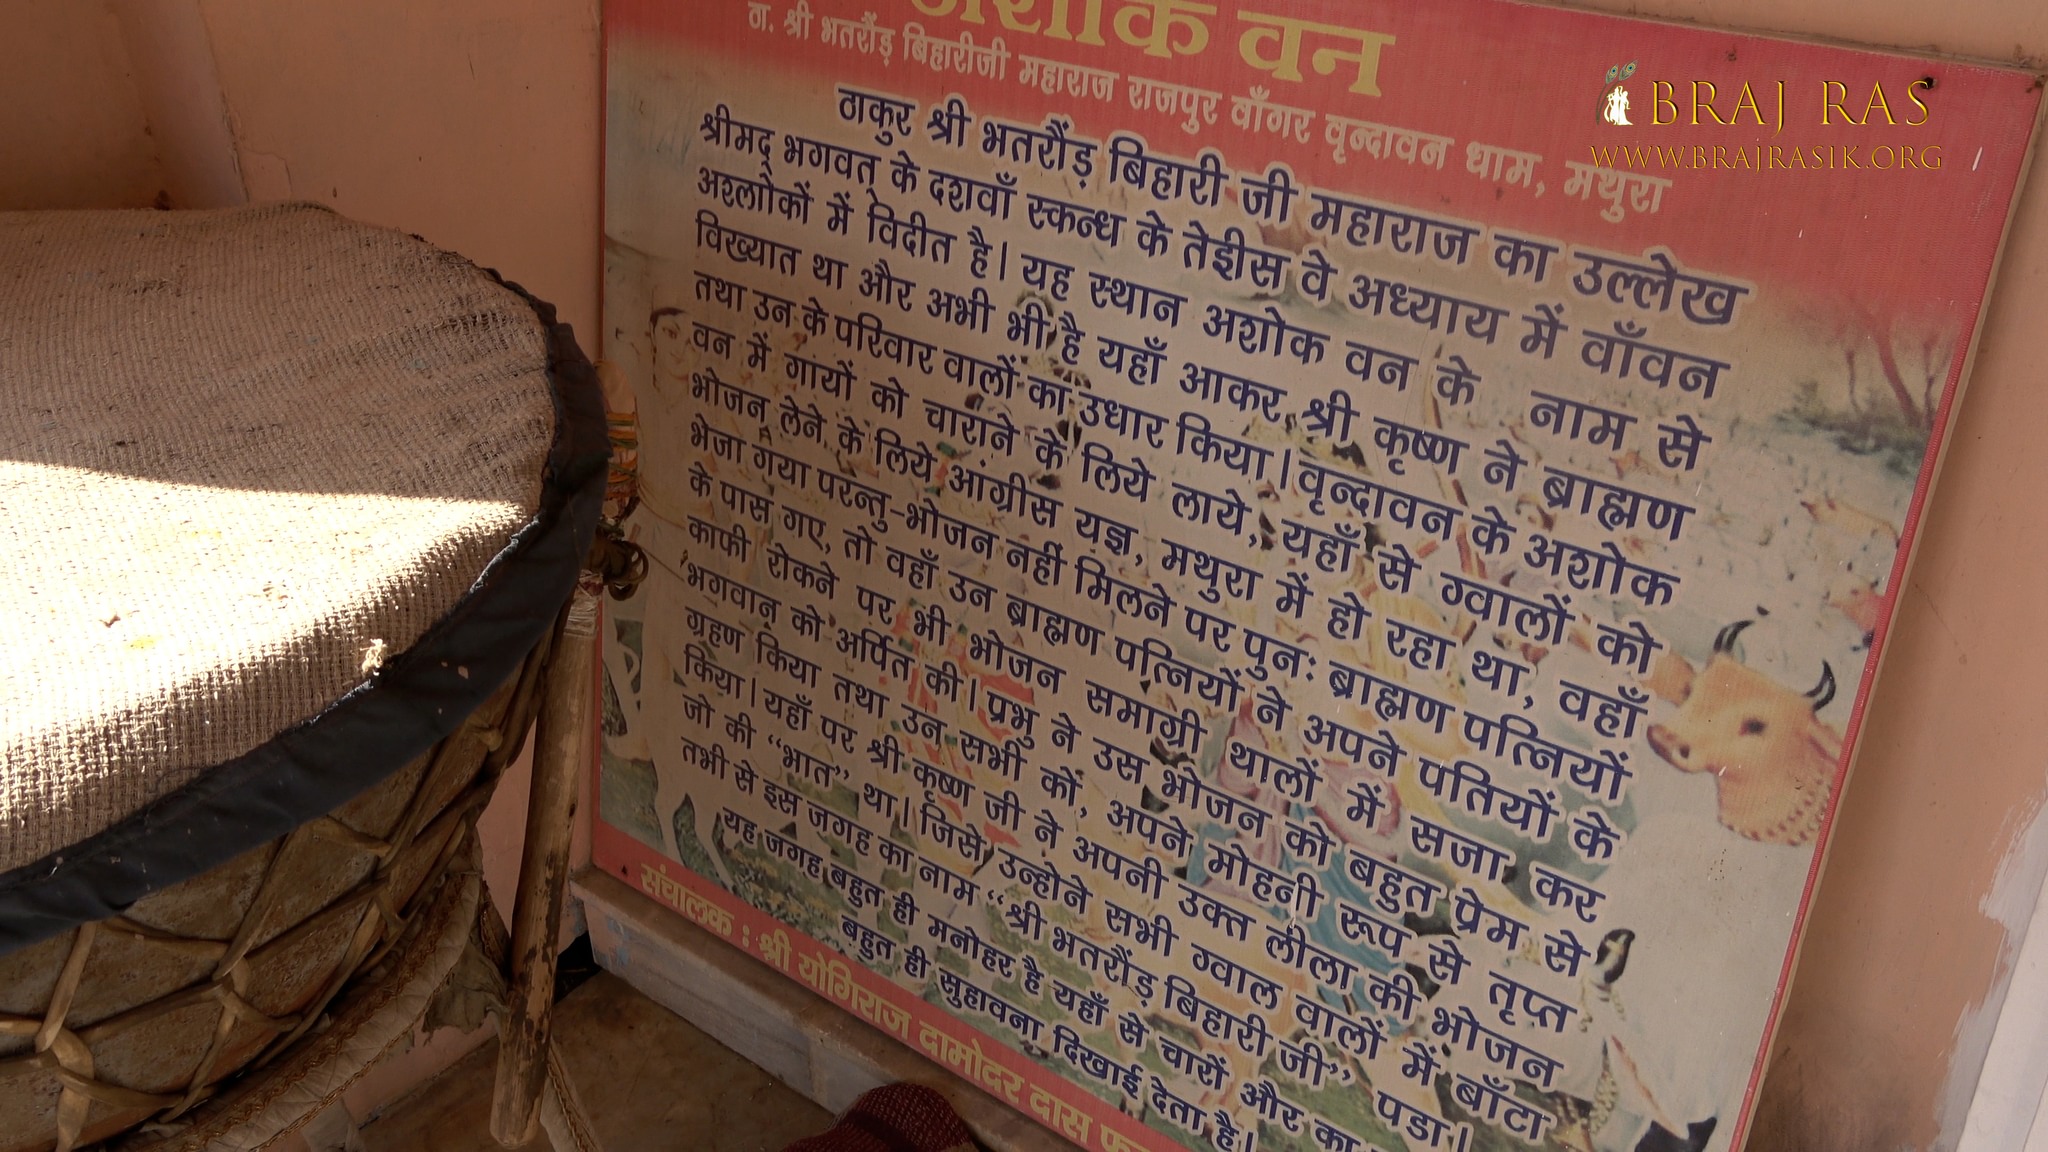 अशोक वन
ठा. श्री भतरौंड़ बिहारीजी महाराज राजपुर वाँगर वृन्दावन धाम, मथुरा
BRAJ RAS
WWW.BRAJRASIK.ORG
ठाकुर श्री भतरौंड़ बिहारी जी महाराज का उल्लेख
श्रीमद् भगवत् के दशवाँ स्कन्ध के तेइीस वे अध्याय में वाँवन
अश्लोकों में विदीत है। यह स्थान अशोक वन के नाम से
विख्यात था और अभी भी है यहाँ आकर श्री कृष्ण ने ब्राह्मण
तथा उन के परिवार वालों का उधार किया। वृन्दावन के अशोक
वन में गांयों को चाराने के लिये लाये, यहाँ से ग्वालों को
भोजन लेने के लिये आंग्रीस यज्ञ, मथुरा में हो रहा था, वहाँ
भेजा गया परन्तु-भोजन नहीं मिलने पर पुनः ब्राह्मण पत्नियों
के पास गए, तो वहाँ उन ब्राह्मण पत्नियों ने अपने पतियों के
काफी रोकने पर भी भोजन समाग्री थालों में सजा कर
भगवान् को अर्पित की। प्रभु ने उस भोजन को बहुत प्रेम से
ग्रहण किया तथा उन सभी को, अपने मोहनी रूप से तृप्त
किया। यहाँ पर श्री कृष्ण जी ने अपनी उक्त लीला की भोजन
जो की “भात” था। जिसे उन्होने सभी ग्वाल वालों में बाँटा
तभी से इस जगह का नाम “श्री भतरौंड़ बिहारी जी” पडा।
यह जगह बहुत ही मनोहर है यहाँ से चारों और का
बहुत ही सुहावना दिखाई देता है।
संचालक : श्री योगिराज दामोदर दास